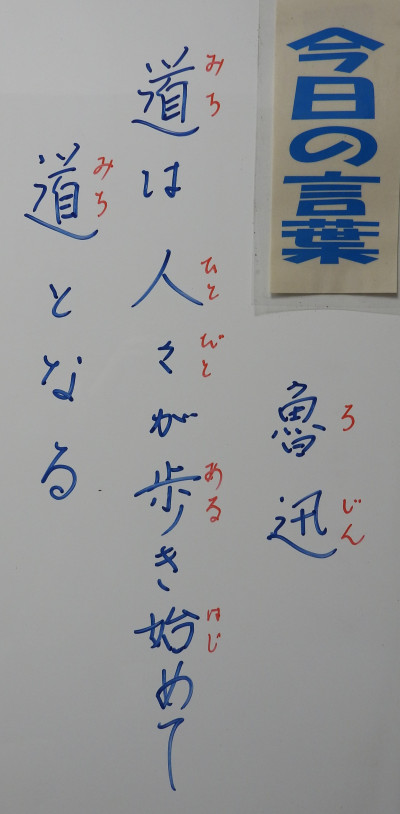 今日の言葉
魯迅
ろじん
道は人々が歩き始めて
みち ひとびと ある はじ
道となる
みち